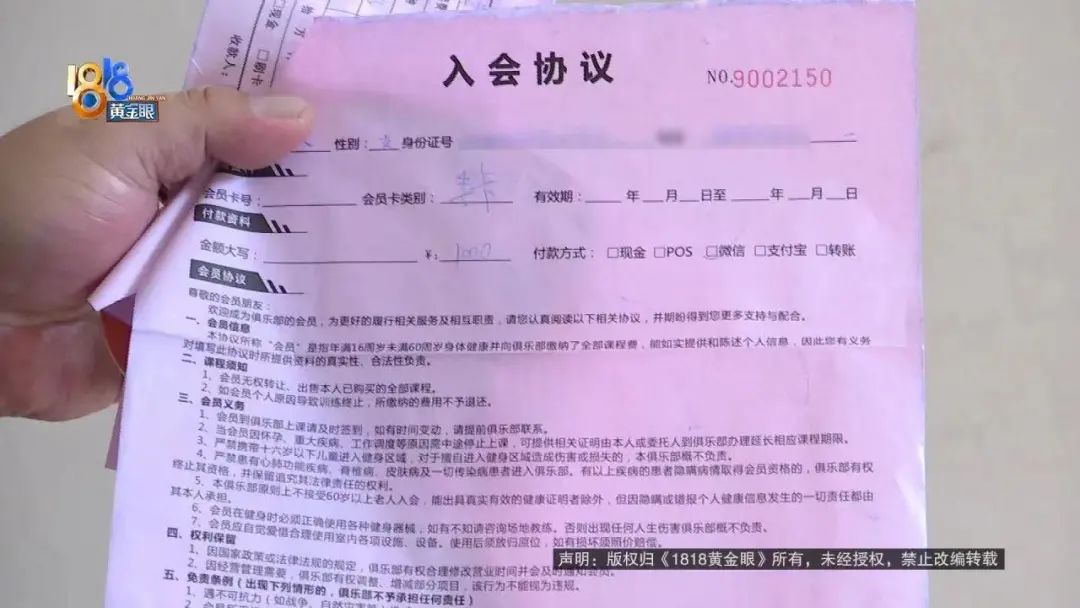 现金
万
收款人：
刷卡
1818
HUANG JIN YAN
黄金眼
入会协议
NO.9002150
性别： 女 身份证号
会员卡号： 会员卡类别： 有效期： 年 月 日至 年 月 日
付款资料
金额大写： ¥：1000 付款方式： □现金 □POS □微信 □支付宝 □转账
会员协议
尊敬的会员朋友：
欢迎成为俱乐部的会员，为更好的履行相关服务及相互职责，请您认真阅读以下相关协议，并期盼得到您更多支持与配合。
一、会员信息
本协议所称“会员”是指年满16周岁未满60周岁身体健康并向俱乐部缴纳了全部课程费，能如实提供和陈述个人信息，因此您有义务
对填写此协议时所提供资料的真实性、合法性负责。
二、课程须知
1、会员无权转让、出售本人已购买的全部课程。
2、如会员个人原因导致训练终止，所缴纳的费用不予退还。
三、会员义务
1、会员到俱乐部上课请及时签到，如有时间变动，请提前俱乐部联系。
2、当会员因怀孕、重大疾病、工作调度等原因需中途停止上课，可提供相关证明由本人或委托人到俱乐部办理延长相应课程期限。
3、严禁携带十六岁以下儿童进入健身区域，对于擅自进入健身区域造成伤害或损失的，本俱乐部概不负责。
4、严禁患有心肺功能疾病、脊椎病、皮肤病及一切传染病患者进入俱乐部。有以上疾病的患者隐瞒病情取得会员资格的，俱乐部有权
终止其资格，并保留追究其法律责任的权利。
5、本俱乐部原则上不接受60岁以上老人入会，能出具真实有效的健康证明者除外，但因隐瞒或错报个人健康信息发生的一切责任都由
其本人承担。
6、会员在健身时必须正确使用各种健身器械，如有不知请咨询场地教练。否则出现任何人生伤害俱乐部概不负责。
7、会员应自觉爱惜合理使用室内各项设施、设备。使用后须放归原位，如有损坏须照价赔偿。
四、权利保留
1、因国家政策或法律法规的规定，俱乐部有权合理修改营业时间并会及时通知会员。
2、因经营管理需要，俱乐部有权调整、增减部分项目，该行为不能视为违规。
五、免责条例（出现下列情形的，俱乐部不予承担任何责任）
1、遇不可抗力（如战争、自然灾害
声明：版权归《1818黄金眼》所有，未经授权，禁止改编转载